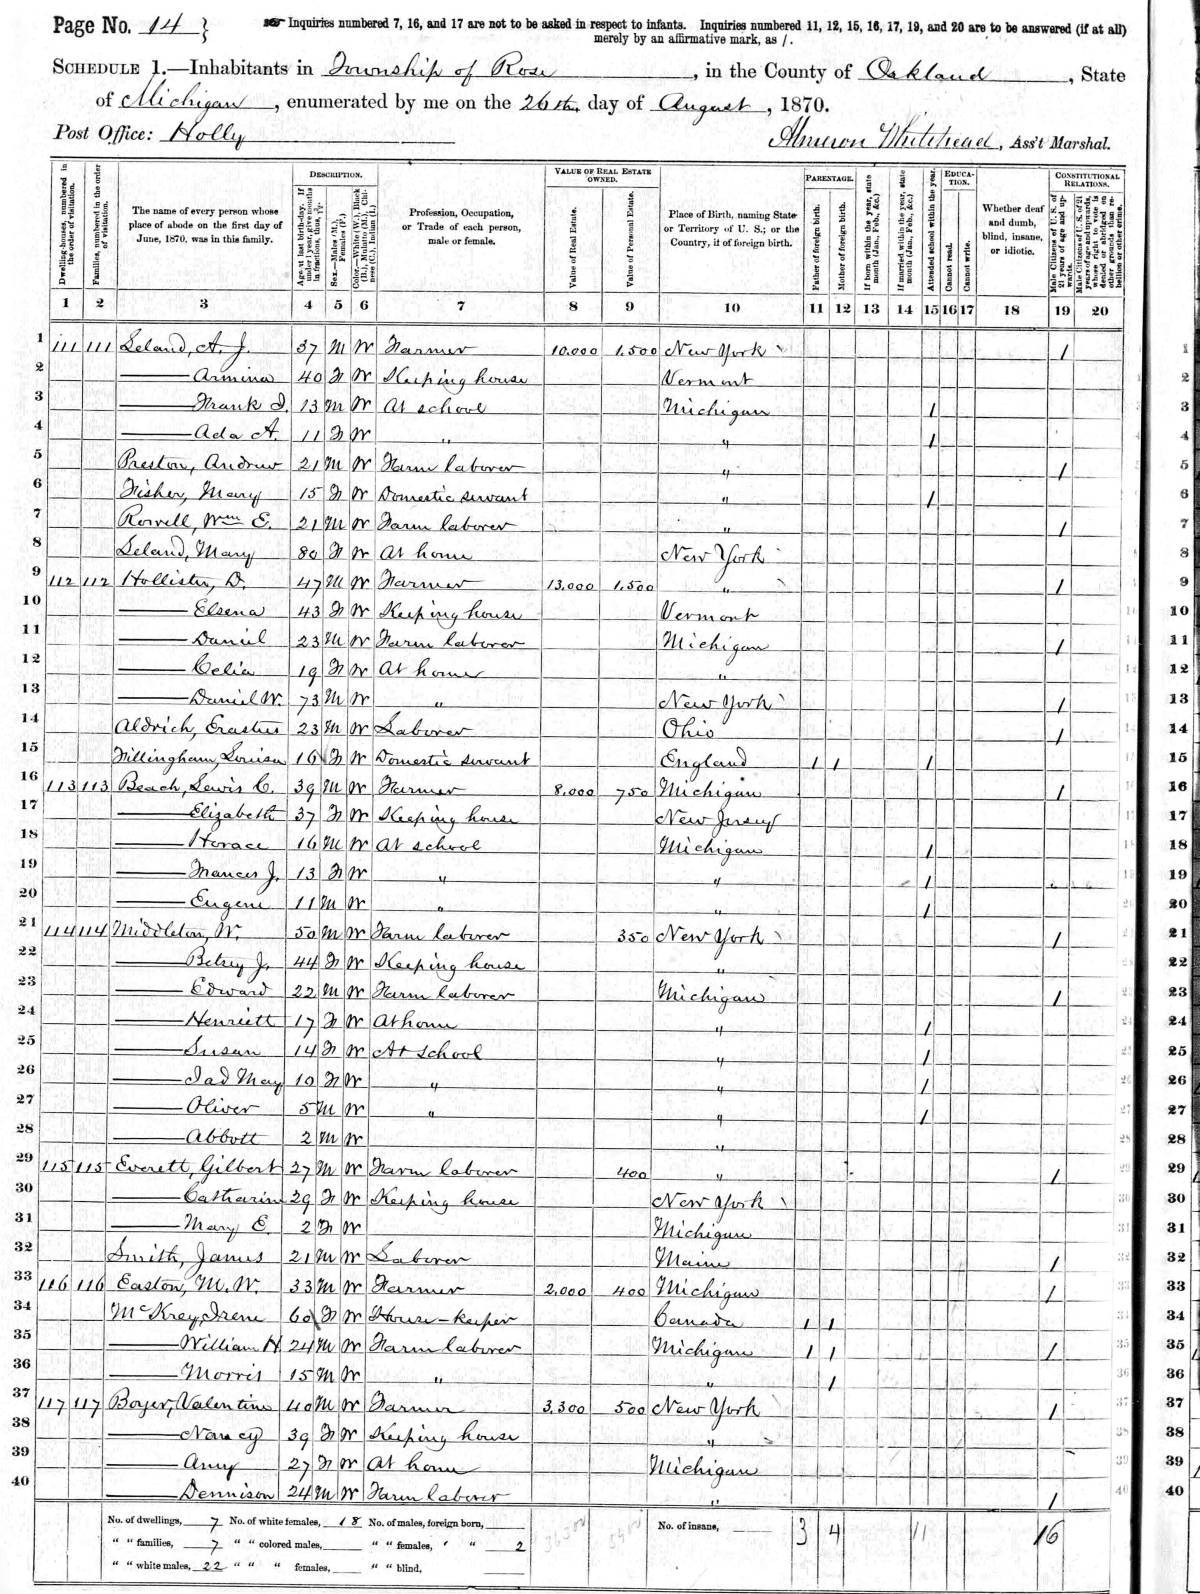 Page No. 14 }
Inquiries numbered 7, 16, and 17 are not to be asked in respect to infants. Inquiries numbered 11, 12, 15, 16, 17, 19, and 20 are to be answered (if at all)
merely by an affirmative mark, as /.
SCHEDULE 1.—Inhabitants in Township of Rose, in the County of Oakland, State
of Michigan, enumerated by me on the 26th day of August, 1870.
Post Office: Holly
Almeron Whitehead, Ass't Marshal.
DESCRIPTION. VALUE OF REAL ESTATE OWNED. PARENTAGE. EDUCATION. CONSTITUTIONAL RELATIONS.
Dwelling-houses, numbered in the order of visitation. Families, numbered in the order of visitation. The name of every person whose place of abode on the first day of June, 1870, was in this family. Age at last birth-day. If under 1 year, give months in fractions, thus, 3/12 Sex.—Males (M.), Females (F.) Color.—White (W.), Black (B.), Mulatto (M.), Chinese (C.), Indian (I.) Profession, Occupation, or Trade of each person, male or female. Value of Real Estate. Value of Personal Estate. Place of Birth, naming State or Territory of U. S.; or the Country, if of foreign birth. Father of foreign birth. Mother of foreign birth. If born within the year, state month (Jan., Feb., &c.) If married within the year, state month (Jan., Feb., &c.) Attended school within the year. Cannot read. Cannot write. Whether deaf and dumb, blind, insane, or idiotic. Male Citizens of U. S. of 21 years of age and upwards. Male Citizens of U. S. of 21 years of age and upwards, whose right to vote is denied or abridged on other grounds than rebellion or other crime.
1 2 3 4 5 6 7 8 9 10 11 12 13 14 15 16 17 18 19 20
1 111 111 Leland, A. J. 37 M W Farmer 10,000 1,500 New York / 1
2 —— Armina 40 F W Keeping house Vermont 2
3 —— Frank I. 13 M W At school Michigan / 3
4 —— Ada A. 11 F W " " / 4
5 Preston, Andrew 21 M W Farm laborer " / 5
6 Fisher, Mary 15 F W Domestic servant " / 6
7 Rowell, Wm E. 21 M W Farm laborer " / 7
8 Leland, Mary 80 F W At home New York 8
9 112 112 Hollister, D. 47 M W Farmer 13,000 1,500 " / 9
10 —— Elsena 43 F W Keeping house Vermont 10
11 —— Daniel 23 M W Farm laborer Michigan / 11
12 —— Celia 19 F W At home " 12
13 —— Daniel W. 73 M W " New York / 13
14 Aldrich, Erastus 23 M W Laborer Ohio / 14
15 Fillingham, Louisa 16 F W Domestic servant England / / / 15
16 113 113 Beach, Lewis C. 39 M W Farmer 8,000 750 Michigan / 16
17 —— Elizabeth 37 F W Keeping house New Jersey 17
18 —— Horace 16 M W At school Michigan / 18
19 —— Frances J. 13 F W " " / 19
20 —— Eugene 11 M W " " / 20
21 114 114 Middleton, W. 50 M W Farm laborer 350 New York / 21
22 —— Betsey J. 44 F W Keeping house " 22
23 —— Edward 22 M W Farm laborer Michigan / 23
24 —— Henriett 17 F W At home " / 24
25 —— Susan 14 F W At school " / 25
26 —— Iad May 10 F W " " / 26
27 —— Oliver 5 M W " " / 27
28 —— Abbott 2 M W " 28
29 115 115 Everett, Gilbert 27 M W Farm laborer 400 " / 29
30 —— Catharine 29 F W Keeping house New York 30
31 —— Mary E. 2 F W Michigan 31
32 Smith, James 21 M W Laborer Maine / 32
33 116 116 Easton, M. W. 33 M W Farmer 2,000 400 Michigan / 33
34 McKrey, Irene 60 F W House-keeper Canada / / 34
35 —— William H 24 M W Farm laborer Michigan / / / 35
36 —— Morris 15 M W " " / 36
37 117 117 Boyer, Valentine 40 M W Farmer 3,300 500 New York / 37
38 —— Nancy 39 F W Keeping house " 38
39 —— Amy 27 F W At home Michigan 39
40 —— Dennison 24 M W Farm laborer " / 40
No. of dwellings, 7 No. of white females, 18 No. of males, foreign born, No. of insane, 3 4 11 16
" " families, 7 " " colored males, " " females, " " 2
" " white males, 22 " " " females, " " blind,